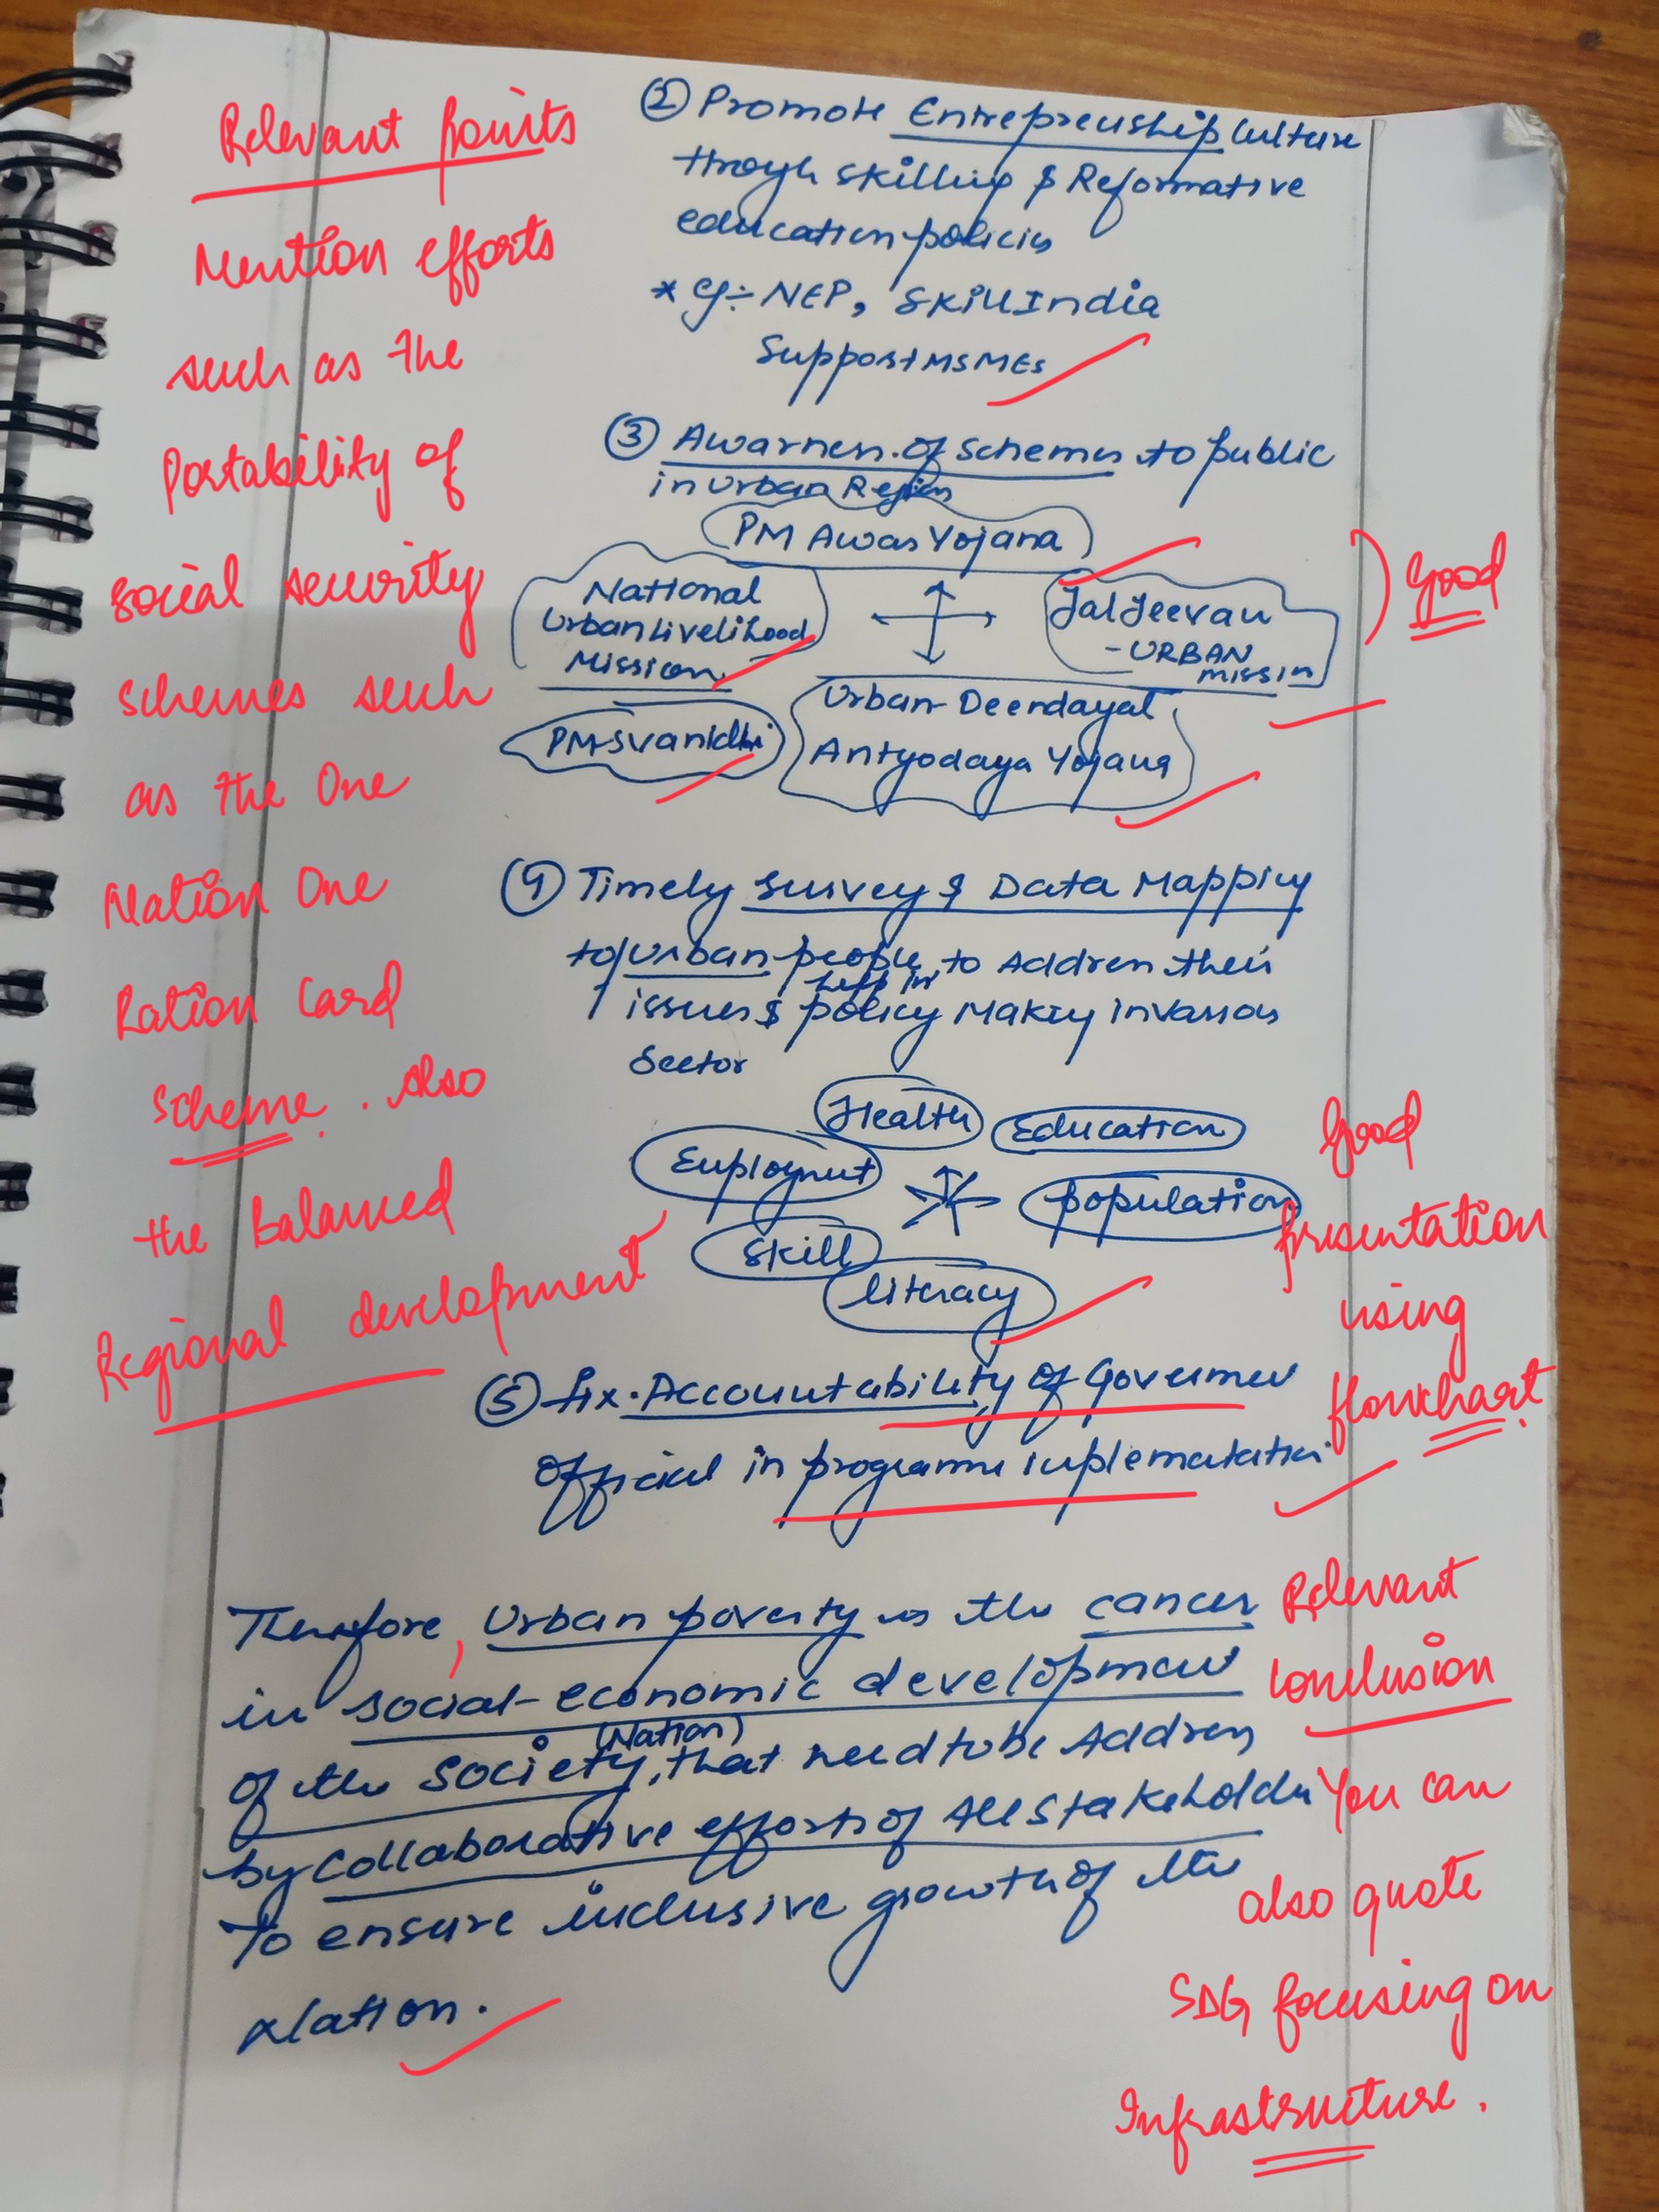 Relevant points
Mention efforts
such as the
Portability of
social security
schemes such
as the One
Nation One
Ration Card
scheme. Also
the Balanced
Regional development
② Promote Entrepreuship Culture
throygh skilling & Reformative
education policies
* eg:- NEP, Skill India
Support MSMEs
③ Awarness of schemes to public
in Urban Region
PM Awas Yojana
National
Urban livelihood
Mission
Jal Jeevan
- URBAN
missin
PM-Svanidhi
Urban Deendayal
Antyodaya Yojana
Good
④ Timely survey & Data Mapping
to urban people to Address their
help in
issues & policy Making in various
Sector
Health
Education
Employmut
population
Skill
literacy
Good
presentation
using
flowchart
⑤ fix Accountability of Govermen
Official in programme implematation
Therefore, Urban poverty is the cancer
in social-economic development
(Nation)
of the Society, that need to be Address
by collaborative efforts of All Stakeholder
To ensure inclusive growth of the
Nation.
Relevant
conclusion
You can
also quote
SDG focusing on
Infrastructure.